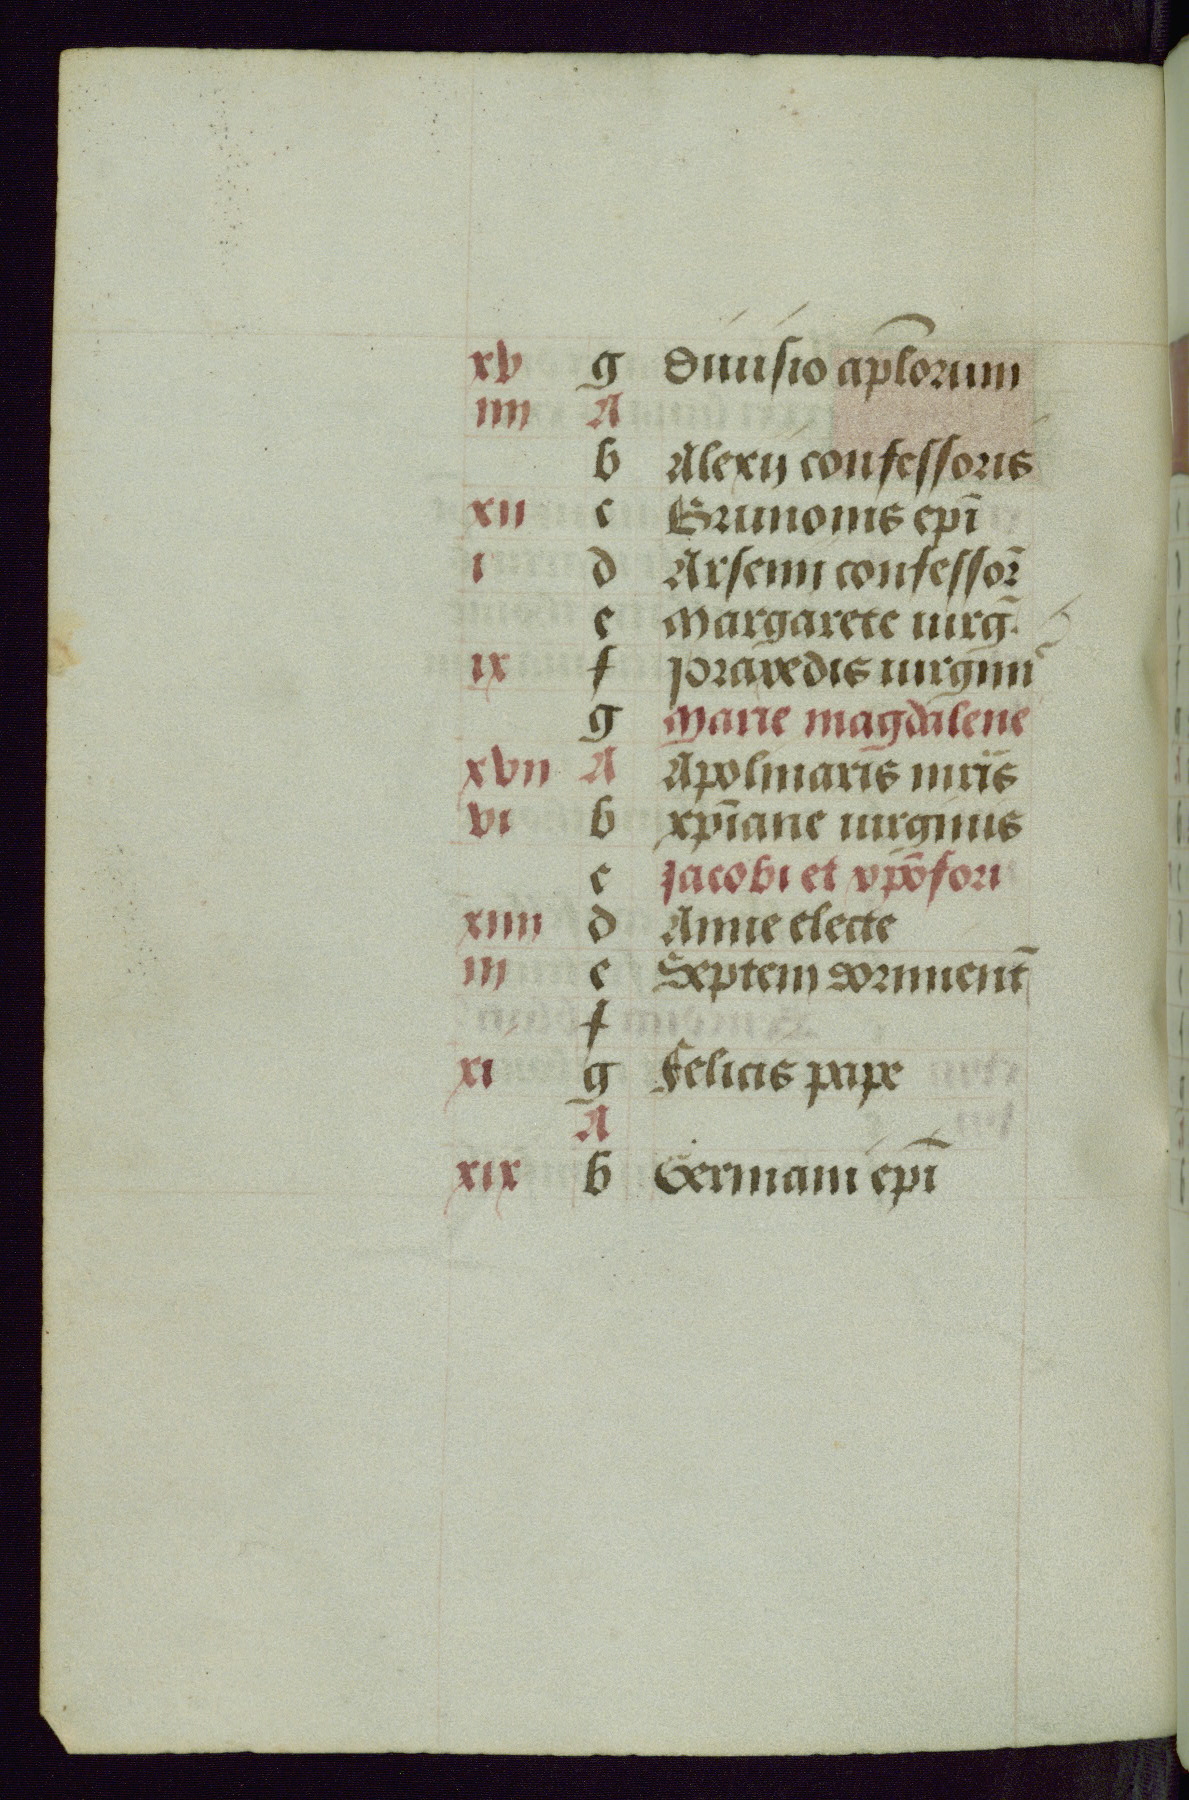 xv g Diuisio apl̄orum
iiii A
b Alexij confessoris
xii c Brunonis epī
i d Arsenij confessor̄
e Margarete uirḡ
ix f Praxedis uirginū
g Marie magdalene
xvii A Apolinaris mr̄is
vi b xp̄iane uirginis
c Jacobi et xpōfori
xiiii d Anne electe
iii e Septem dormient̄
f
xi g Felicis pape
A
xix b Germani epī